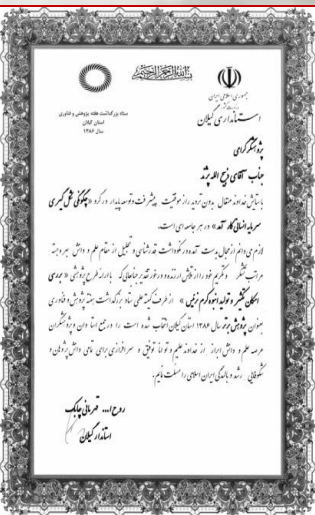 بسم الله الرحمن الرحیم
جمهوری اسلامی ایران
استانداری گیلان
ستاد بزرگداشت هفته پژوهش و فناوری
استان گیلان
سال ۱۳۸۶
پژوهشگر گرامی
جناب آقای ذبیح الله پژند
با ستایش خداوند متعال بدون تردید راز موفقیت پیشرفت و توسعه پایدار در گرو « چگونگی شکل گیری
سرمایه انسانی کارآمد » در هر جامعه ای است.
لازم می دانم از مجال بدست آمده در نکوداشت قدرشناسی و تجلیل از مقام علم و دانش بهره جسته
مراتب تشکر و تکریم خود را از تلاش ارزنده و درخور تقدیر جنابعالی که با ارائه طرح پژوهشی « بررسی
امکان تکثیر و تولید انبوه کرم نرئیس » از طرف کمیته علمی ستاد بزرگداشت هفته پژوهش و فناوری
بعنوان پژوهش برتر سال ۱۳۸۶ استان گیلان انتخاب شده است را در جمع استادان و پژوهشگران
عرصه علم و دانش ابراز از خداوند علیم و توانا توفیق و سرافرازی برای تمامی دانش پژوهان و
شکوفایی رشد و بالندگی ایران اسلامی را مسئلت نمایم.
روح ا... قهرمانی چابک
استاندار گیلان